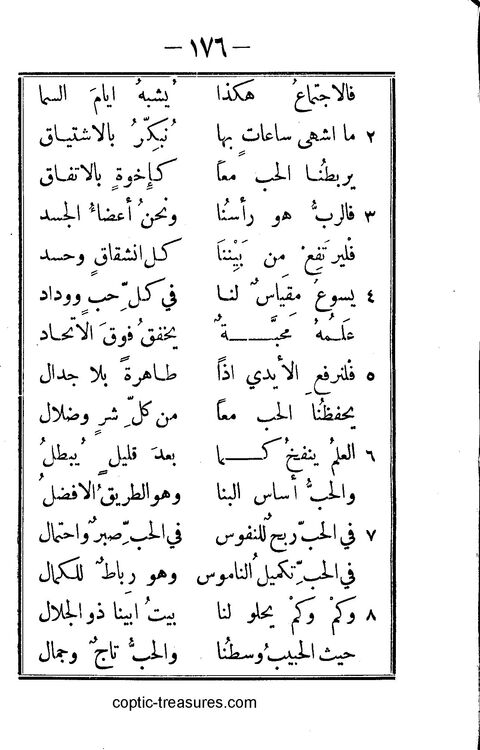 – ١٧٦ –
فالاجتماعُ هكذا يُشبهُ ايامَ السما
٢ ما اشهى ساعاتٍ بها نُبكِّرُ بالاشتياق
يربطُنُا الحب معاً كإِخوةٍ بالاتفاق
٣ فالربُّ هو رأسُنُا ونحنُ أعضاءُ الجسد
فليرتفِعْ من بَيْننَا كل انشقاقٍ وحسد
٤ يسوعُ مِقياسٌ لنا في كلّ حبٍ ووداد
عَلَمُهُ محبَّةٌ يخفقُ فوقَ الاتحاد
٥ فلنرفعِ الأيدي اذاً طاهرةً بلا جدال
يحفظُنُا الحب معاً من كلّ شرٍ وضلال
٦ العلمُ ينفخُ كما بعدَ قليلٍ يُبطلُ
والحبُّ أساس البنا وهو الطريقُ الافضلُ
٧ في الحبِّ ربحٌ للنفوس في الحبِّ صبرٌ واحتمال
في الحبِّ تكميلُ الناموس وهو رباطٌ للكمال
٨ وكمْ وكمْ يحلو لنا بيتُ ابينا ذو الجلال
حيث الحبيبُ وسطنُا والحبُّ تاجٌ وجمال
coptic-treasures.com